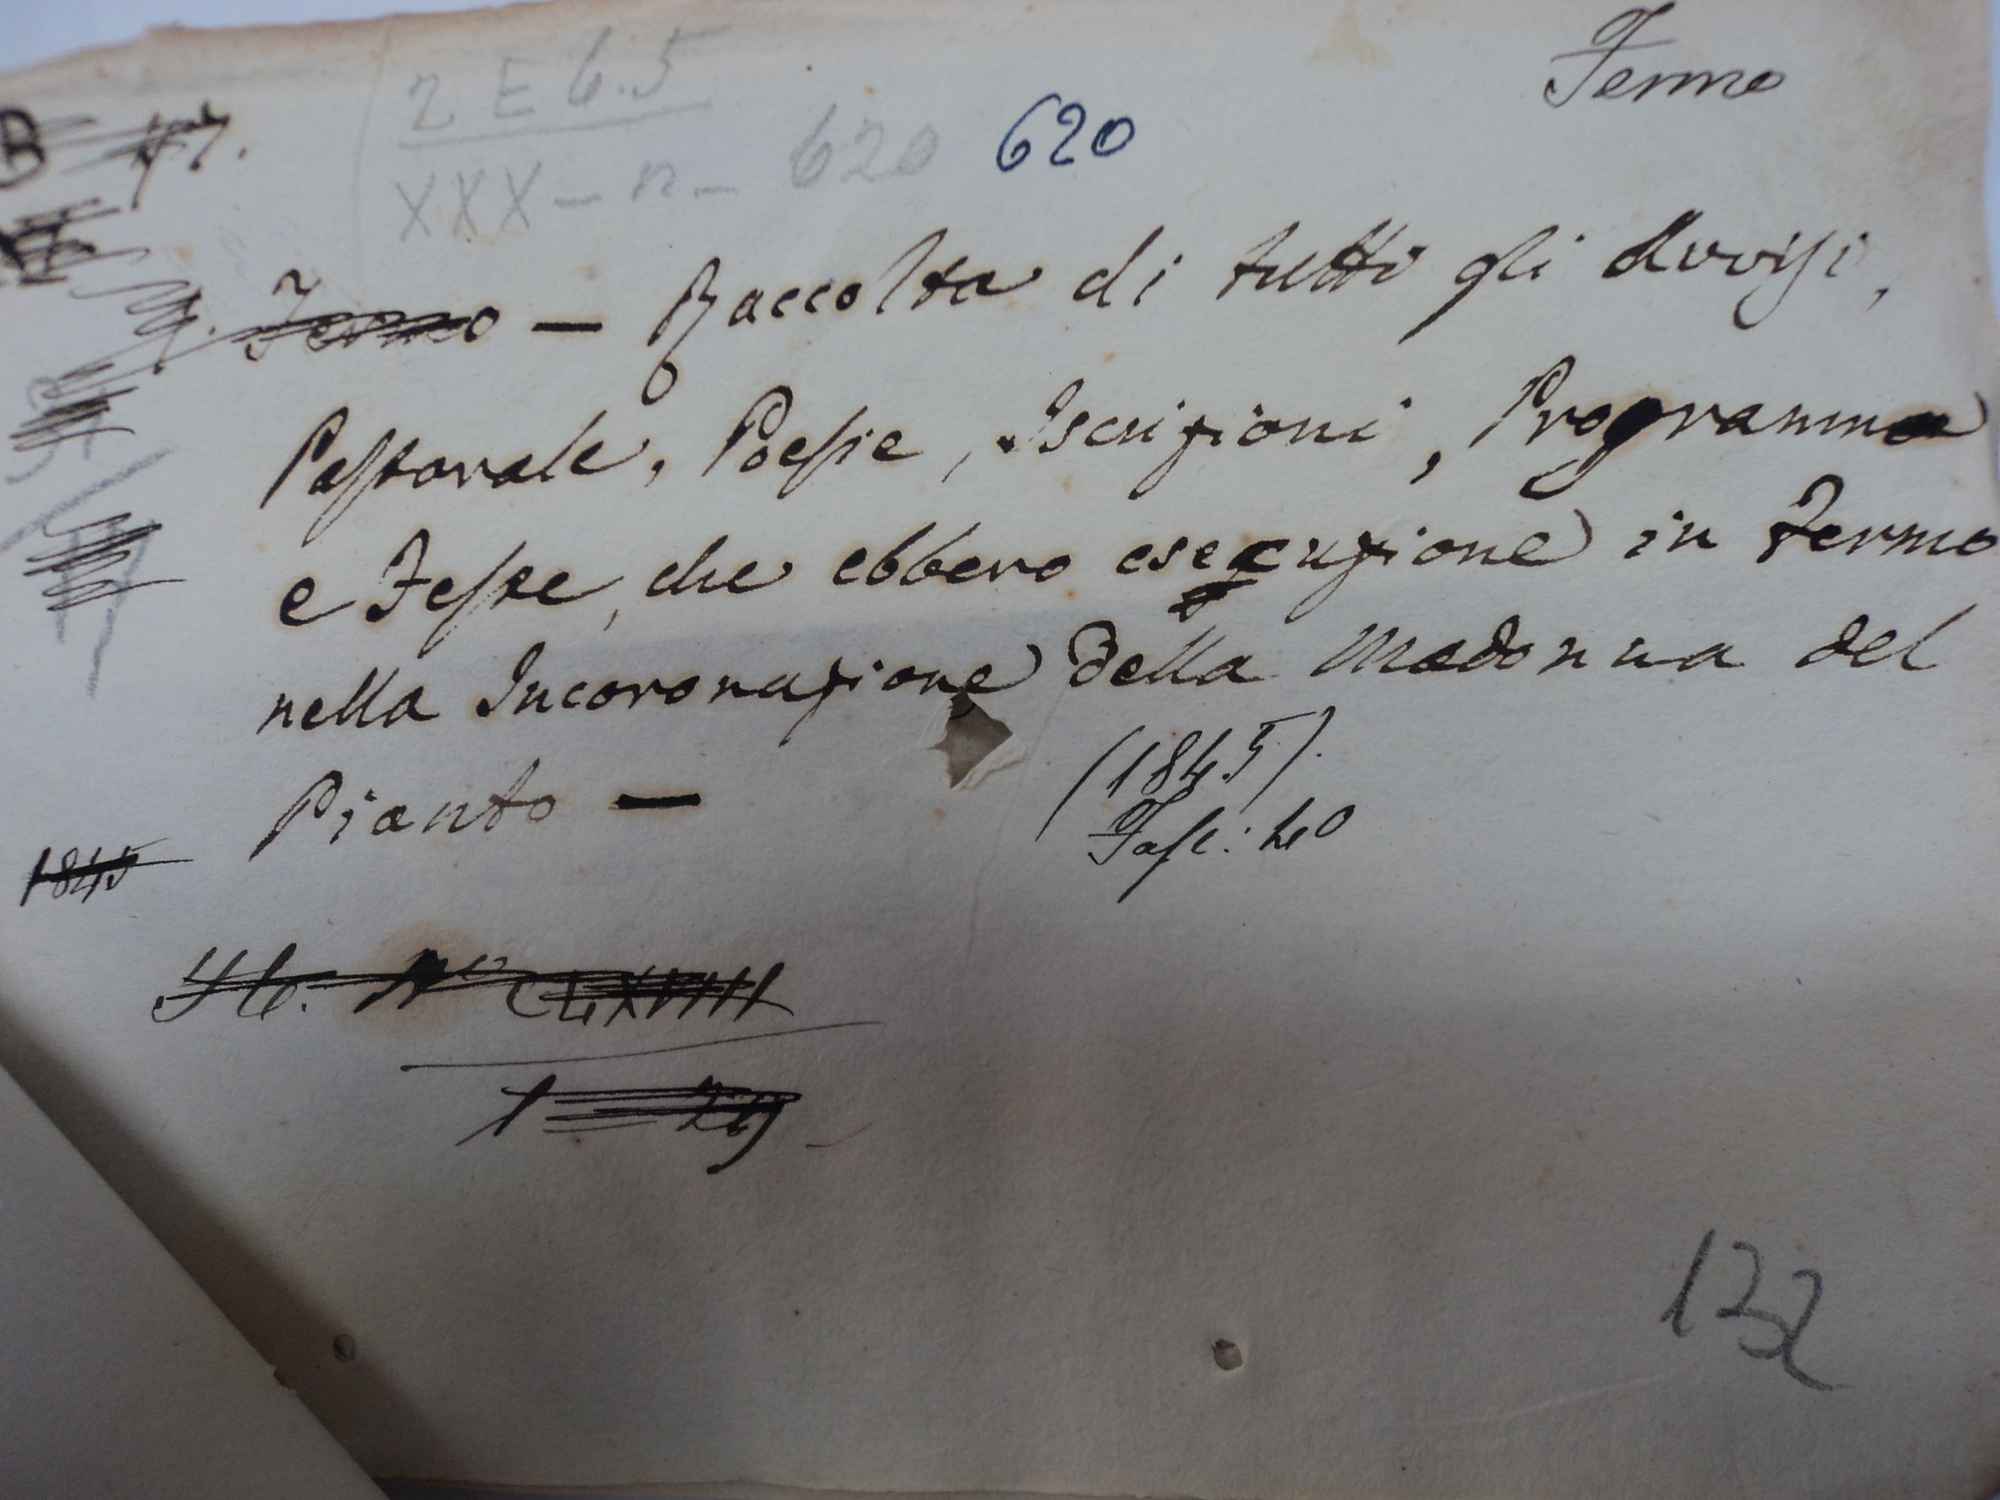 Fermo
2 E 6.5
XXX - n - 620 620
Fermo — Raccolta di tutti gli Avvisi,
Pastorale, Poesie, Iscrizioni, Programma
e Feste, che ebbero esecuzione in Fermo
nella Incoronazione della Madonna del
Pianto —
(1845).
Fasc: 40
1845
132